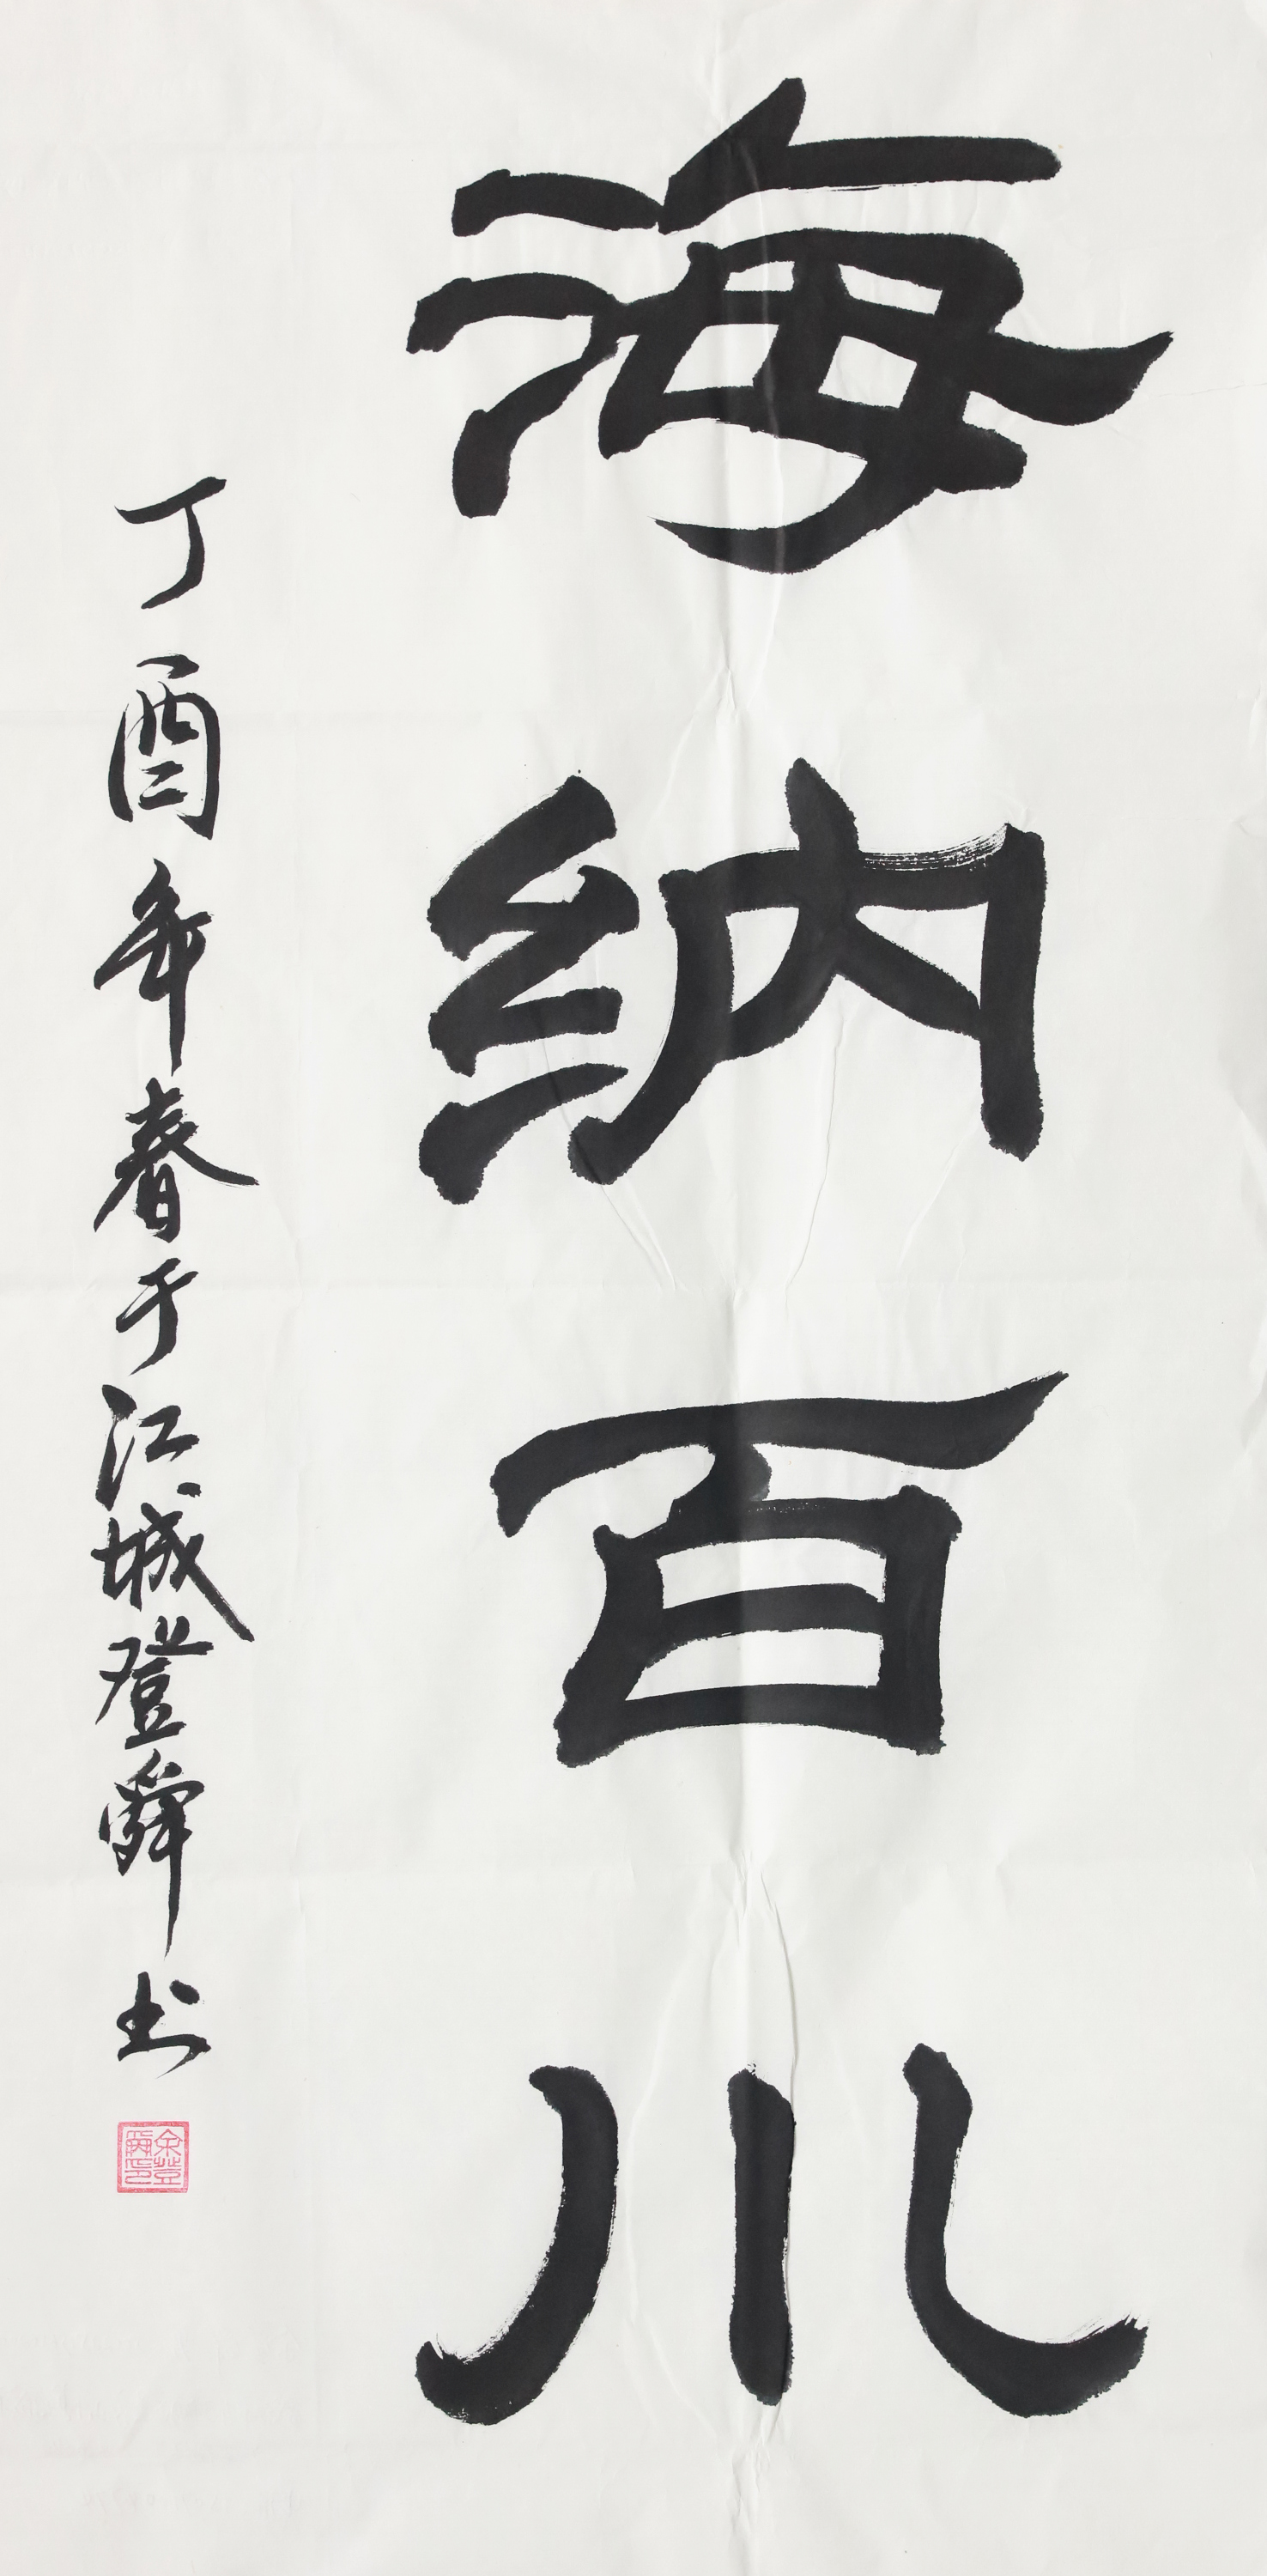 海纳百川
丁酉年春于江城登舜书
余登舜印